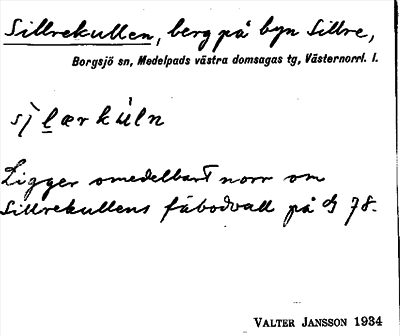 Sillrekullen, berg på byn Sillre,
Borgsjö sn, Medelpads västra domsagas tg, Västernorrl. l.
Ligger omedelbart norr om
Sillrekullens fäbodvall på 78.
VALTER JANSSON 1934